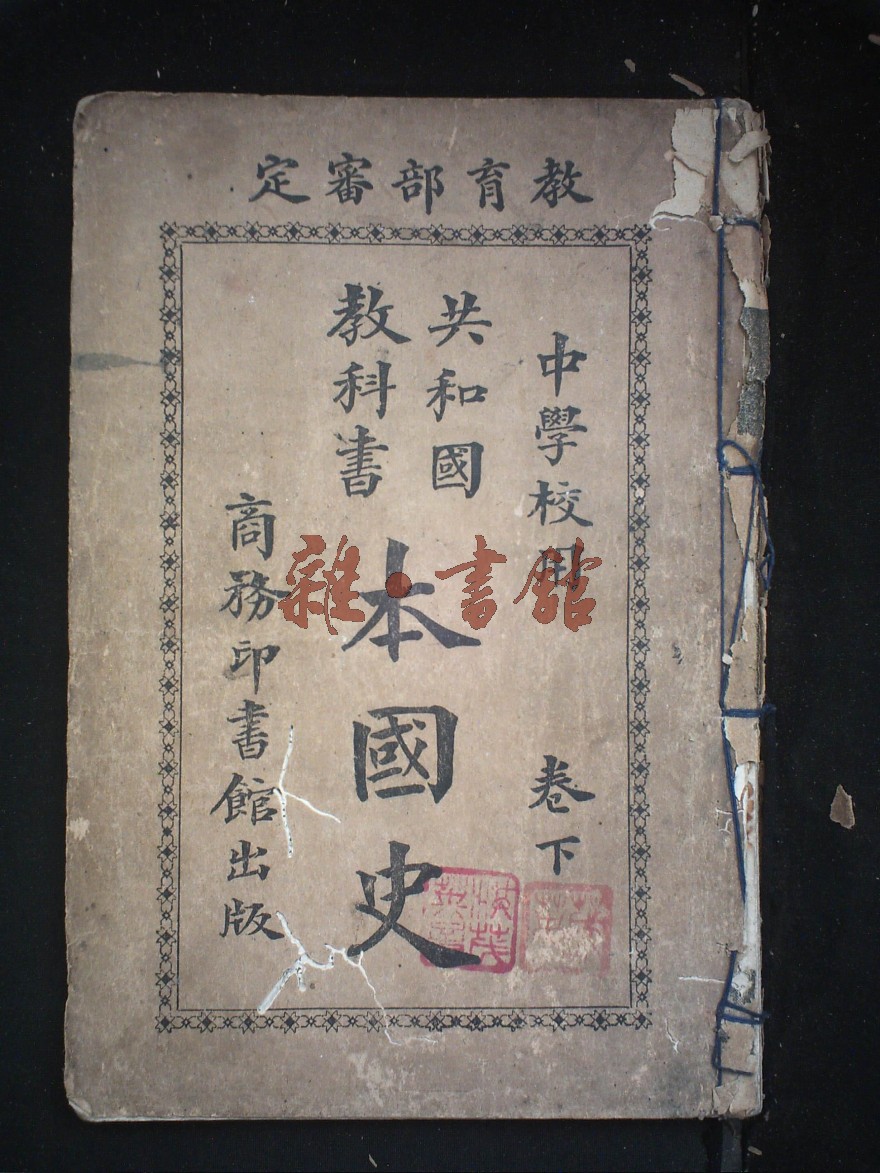 教育部審定
中學校用 卷下
共和國
教科書
本國史
商務印書館出版
雜·書館